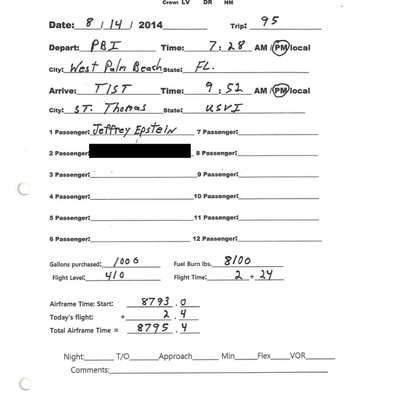 Crew: LV DR NM
Date: 8 / 14 / 2014 Trip: 95
Depart: PBI Time: 7:28 AM / PM local
City: West Palm Beach State: FL.
Arrive: TIST Time: 9:52 AM / PM local
City: ST. Thomas State: USVI
1 Passenger: Jeffrey Epstein 7 Passenger:
2 Passenger: 8 Passenger:
3 Passenger: 9 Passenger:
4 Passenger: 10 Passenger:
5 Passenger: 11 Passenger:
6 Passenger: 12 Passenger:
Gallons purchased: 1006 Fuel Burn lbs. 8100
Flight Level: 410 Flight Time: 2 + 24
Airframe Time: Start: 8793.0
Today's flight: + 2.4
Total Airframe Time = 8795.4
Night: T/O Approach Min Flex VOR
Comments: